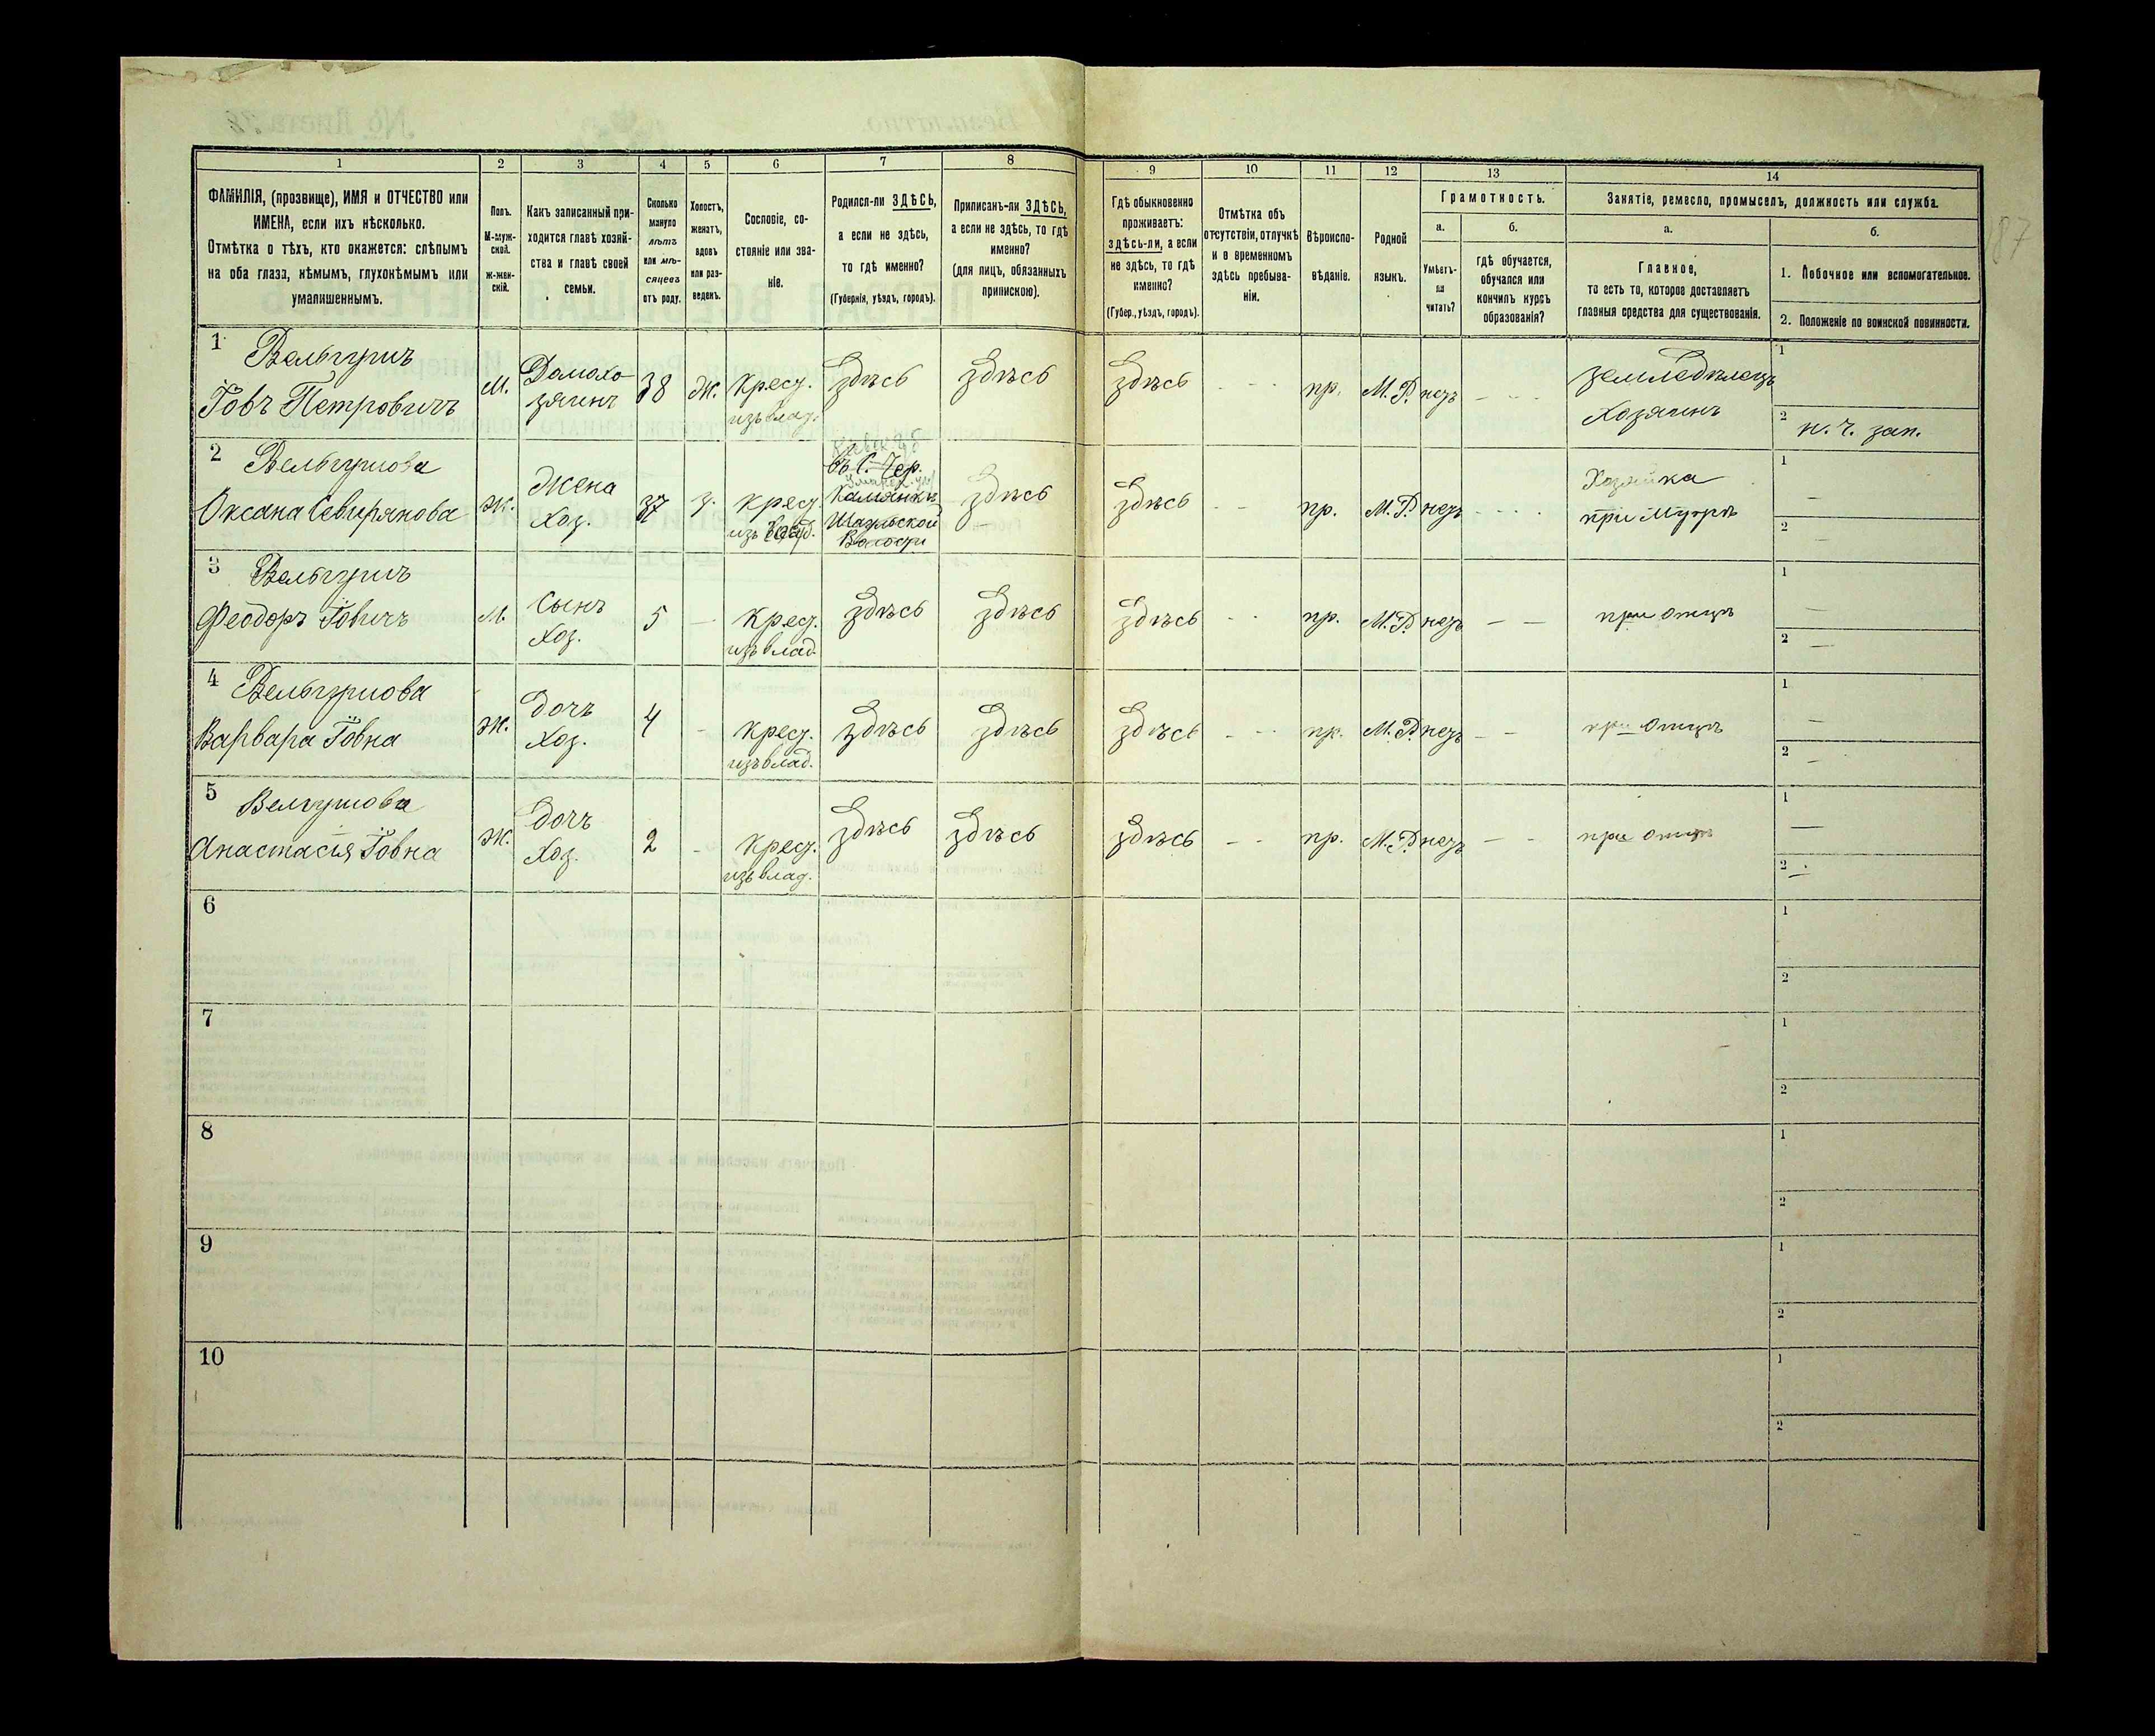 1
2
3
4
5
6
7
8
9
10
11
12
13
14
ФАМИЛІЯ, (прозвище), ИМЯ и ОТЧЕСТВО или
ИМЕНА, если ихъ нѣсколько.
Отмѣтка о тѣхъ, кто окажется: слѣпымъ
на оба глаза, нѣмымъ, глухонѣмымъ или
умалишеннымъ.
Полъ.
М-муж-
ской.
Ж-жен-
скій.
Какъ записанный при-
ходится главѣ хозяй-
ства и главѣ своей
семьи.
Сколько
минуло
лѣтъ
или мѣ-
сяцевъ
отъ роду.
Холостъ,
женатъ,
вдовъ
или раз-
веденъ.
Сословіе, со-
стояніе или зва-
ніе.
Родился-ли ЗДѢСЬ,
а если не здѣсь,
то гдѣ именно?
(Губернія, уѣздъ, городъ).
Приписанъ-ли ЗДѢСЬ,
а если не здѣсь, то гдѣ
именно?
(для лицъ, обязанныхъ
припискою).
Гдѣ обыкновенно
проживаетъ:
здѣсь-ли, а если
не здѣсь, то гдѣ
именно?
(Губер., уѣздъ, городъ).
Отмѣтка объ
отсутствіи, отлучкѣ
и о временномъ
здѣсь пребыва-
ніи.
Вѣроиспо-
вѣданіе.
Родной
языкъ.
Грамотность.
а.
Умѣетъ-
ли
читать?
б.
гдѣ обучается,
обучался или
кончилъ курсъ
образованія?
Занятіе, ремесло, промыселъ, должность или служба.
а.
Главное,
то есть то, которое доставляетъ
главныя средства для существованія.
б.
1. Побочное или вспомогательное.
2. Положеніе по воинской повинности.
187
1 Вельгушъ
Іовъ Петровичъ
М.
Домохо
зяинъ
38
Ж.
Крест.
изъ влад.
здѣсь
здѣсь
здѣсь
- - -
пр.
М.Р.
нет
- - -
земледѣлецъ
Хозяинъ
1
2 н. ч. зап.
2 Вельгушова
Оксана Севирянова
Ж.
Жена
Хоз.
37
з.
крест.
изъ влад.
въ С. Чер.
Камянки
Волости
здѣсь
здѣсь
пр.
М.Р.
нет
- - - -
Хозяйка
при Мужѣ
1 —
2 —
3 Вельгушъ
Феодоръ Іовичъ
М.
Сынъ
Хоз.
5
—
Крест.
изъ влад.
здѣсь
здѣсь
здѣсь
- -
пр.
М.Р.
нет
— —
при отцѣ
1 —
2 —
4 Вельгушова
Варвара Іовна
Ж.
Дочъ
Хоз.
4
-
крест.
изъ влад.
здѣсь
здѣсь
здѣсь
- - -
пр.
М.Р.
нет
- -
при отцѣ
1 —
2 —
5 Велгушова
Анастасія Іовна
Ж.
Дочъ
Хоз.
2
-
Крест.
изъ влад.
здѣсь
здѣсь
здѣсь
- -
пр.
М.Р.
нет
— -
при отцѣ
1 —
2 —
6
1
2
7
1
2
8
1
2
9
1
2
10
1
2